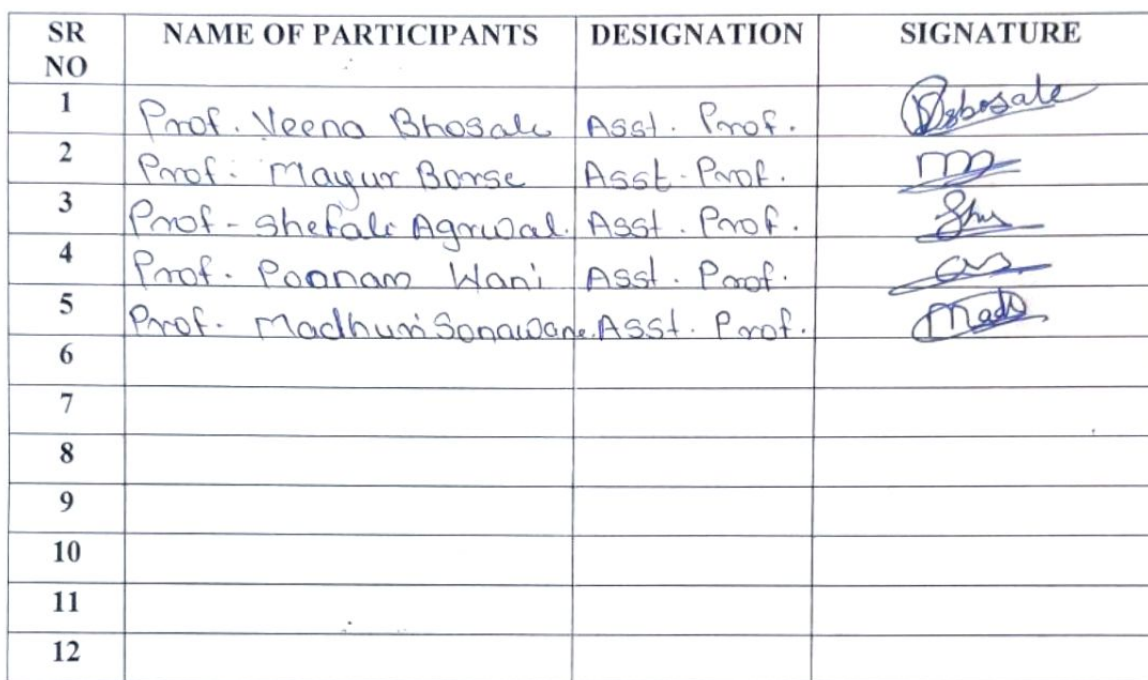 SR NO NAME OF PARTICIPANTS DESIGNATION SIGNATURE
1 Prof. Veena Bhosale Asst. Prof.
2 Prof. Mayur Borse Asst. Prof.
3 Prof. Shefali Agrwal. Asst. Prof.
4 Prof. Poonam Wani Asst. Prof.
5 Prof. Madhuri Sonawane. Asst. Prof.
6
7
8
9
10
11
12